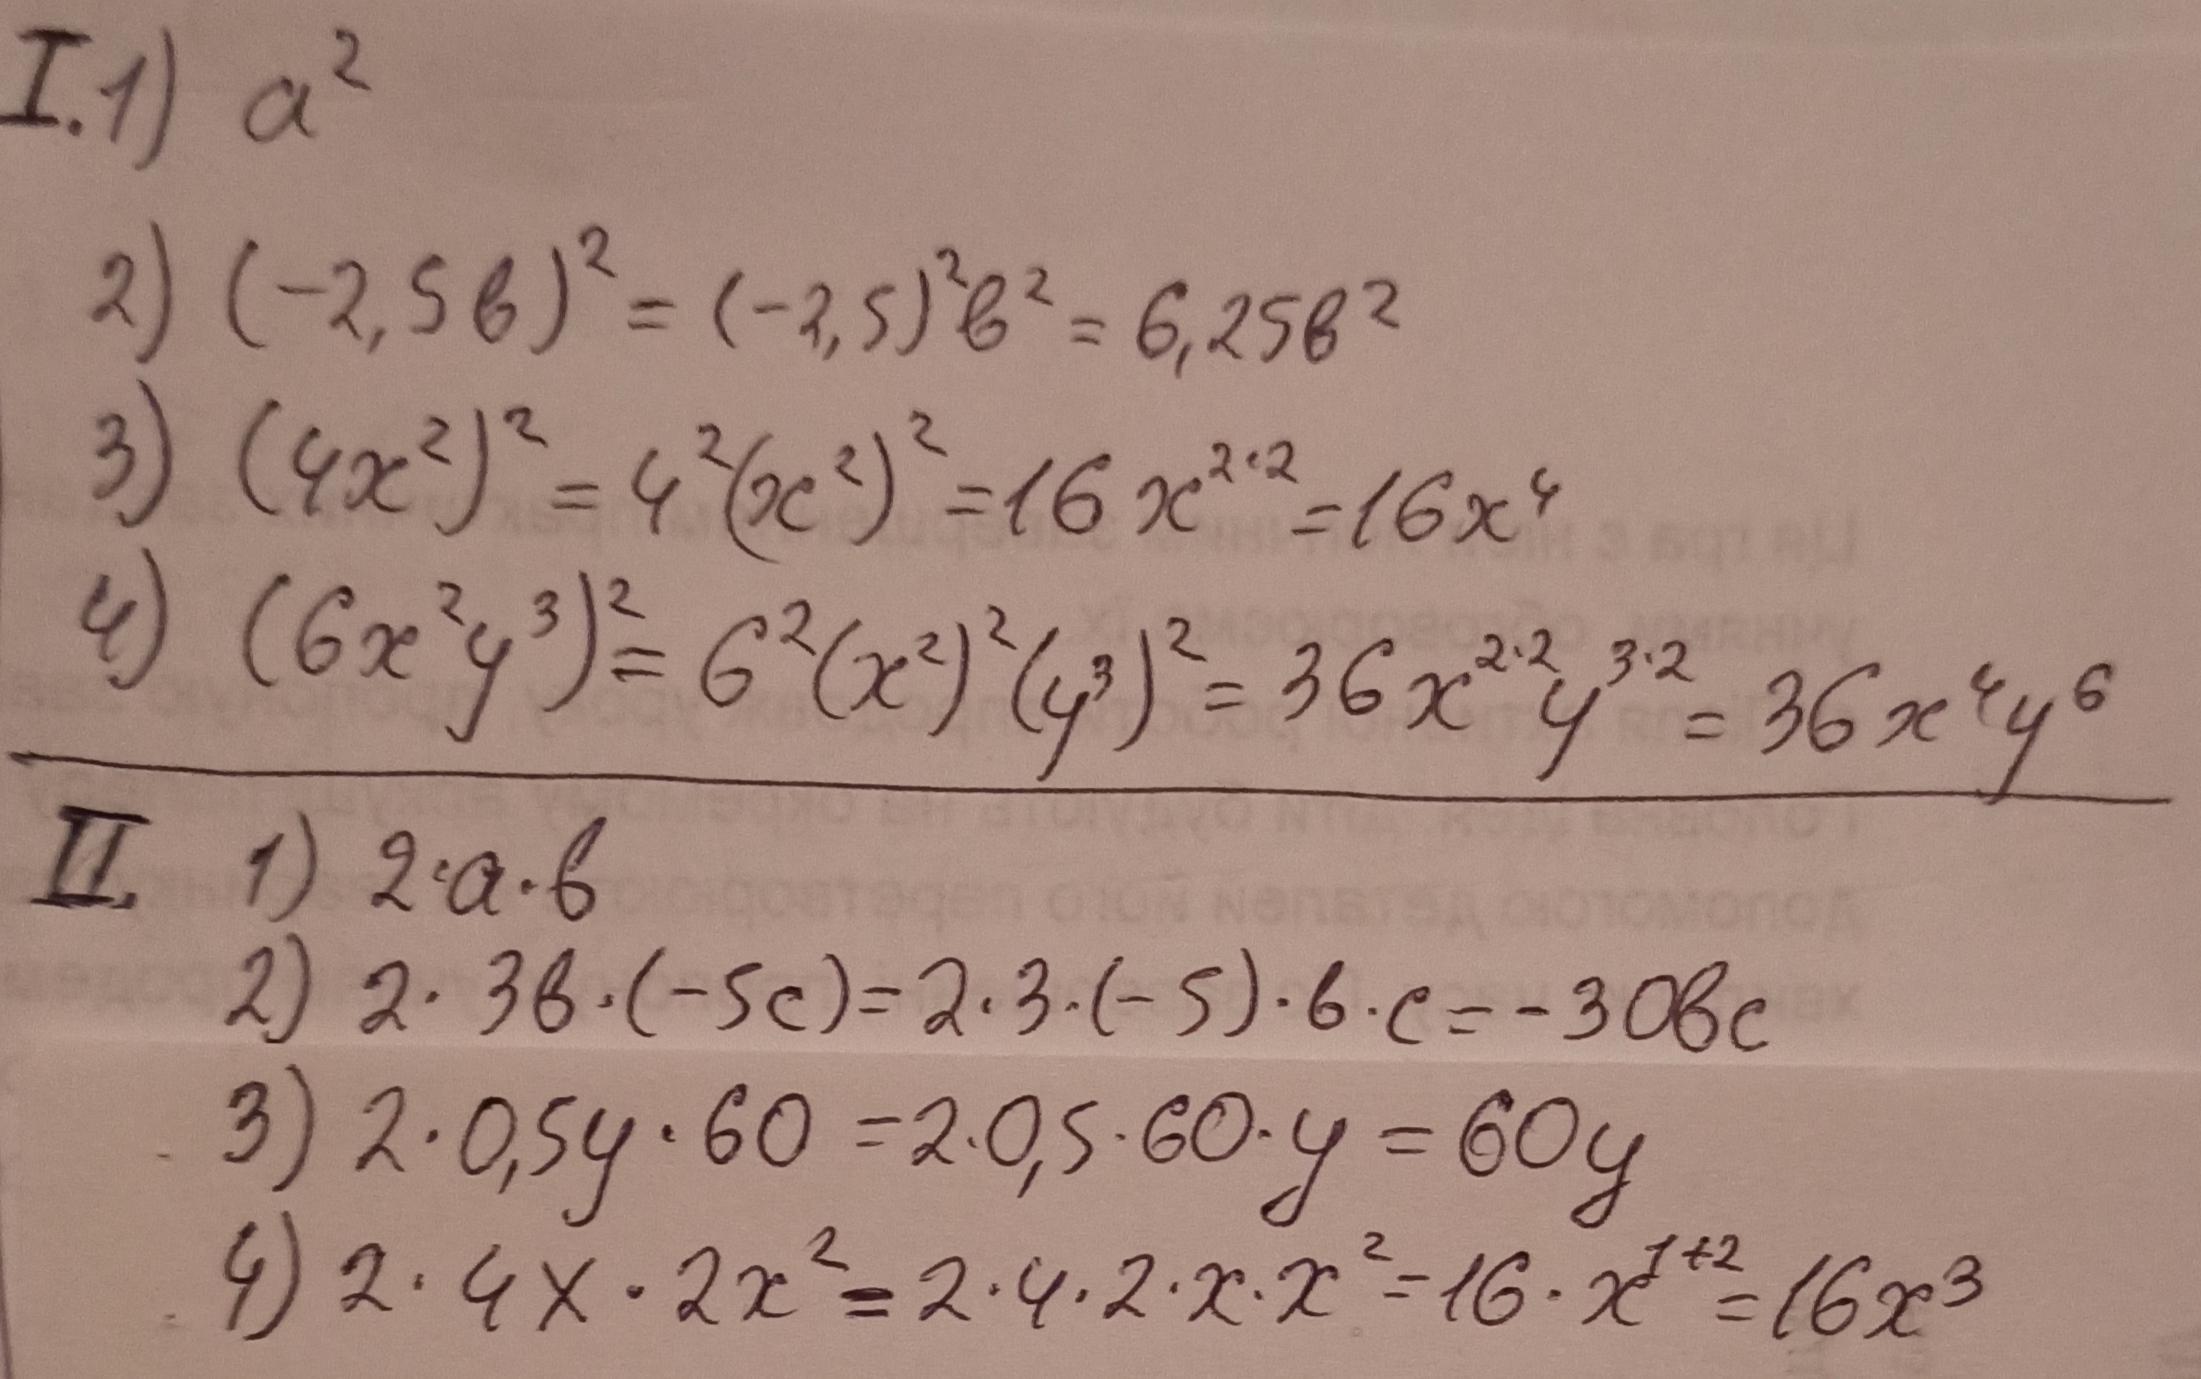 I. 1) a²
2) (-2,5b)² = (-2,5)²b² = 6,25b²
3) (4x²)² = 4²(x²)² = 16x²·² = 16x⁴
4) (6x²y³)² = 6²(x²)²(y³)² = 36x²·²y³·² = 36x⁴y⁶
II. 1) 2·a·b
2) 2·3b·(-5c) = 2·3·(-5)·b·c = -30bc
3) 2·0,5y·60 = 2·0,5·60·y = 60y
4) 2·4x·2x² = 2·4·2·x·x² = 16·x¹⁺² = 16x³